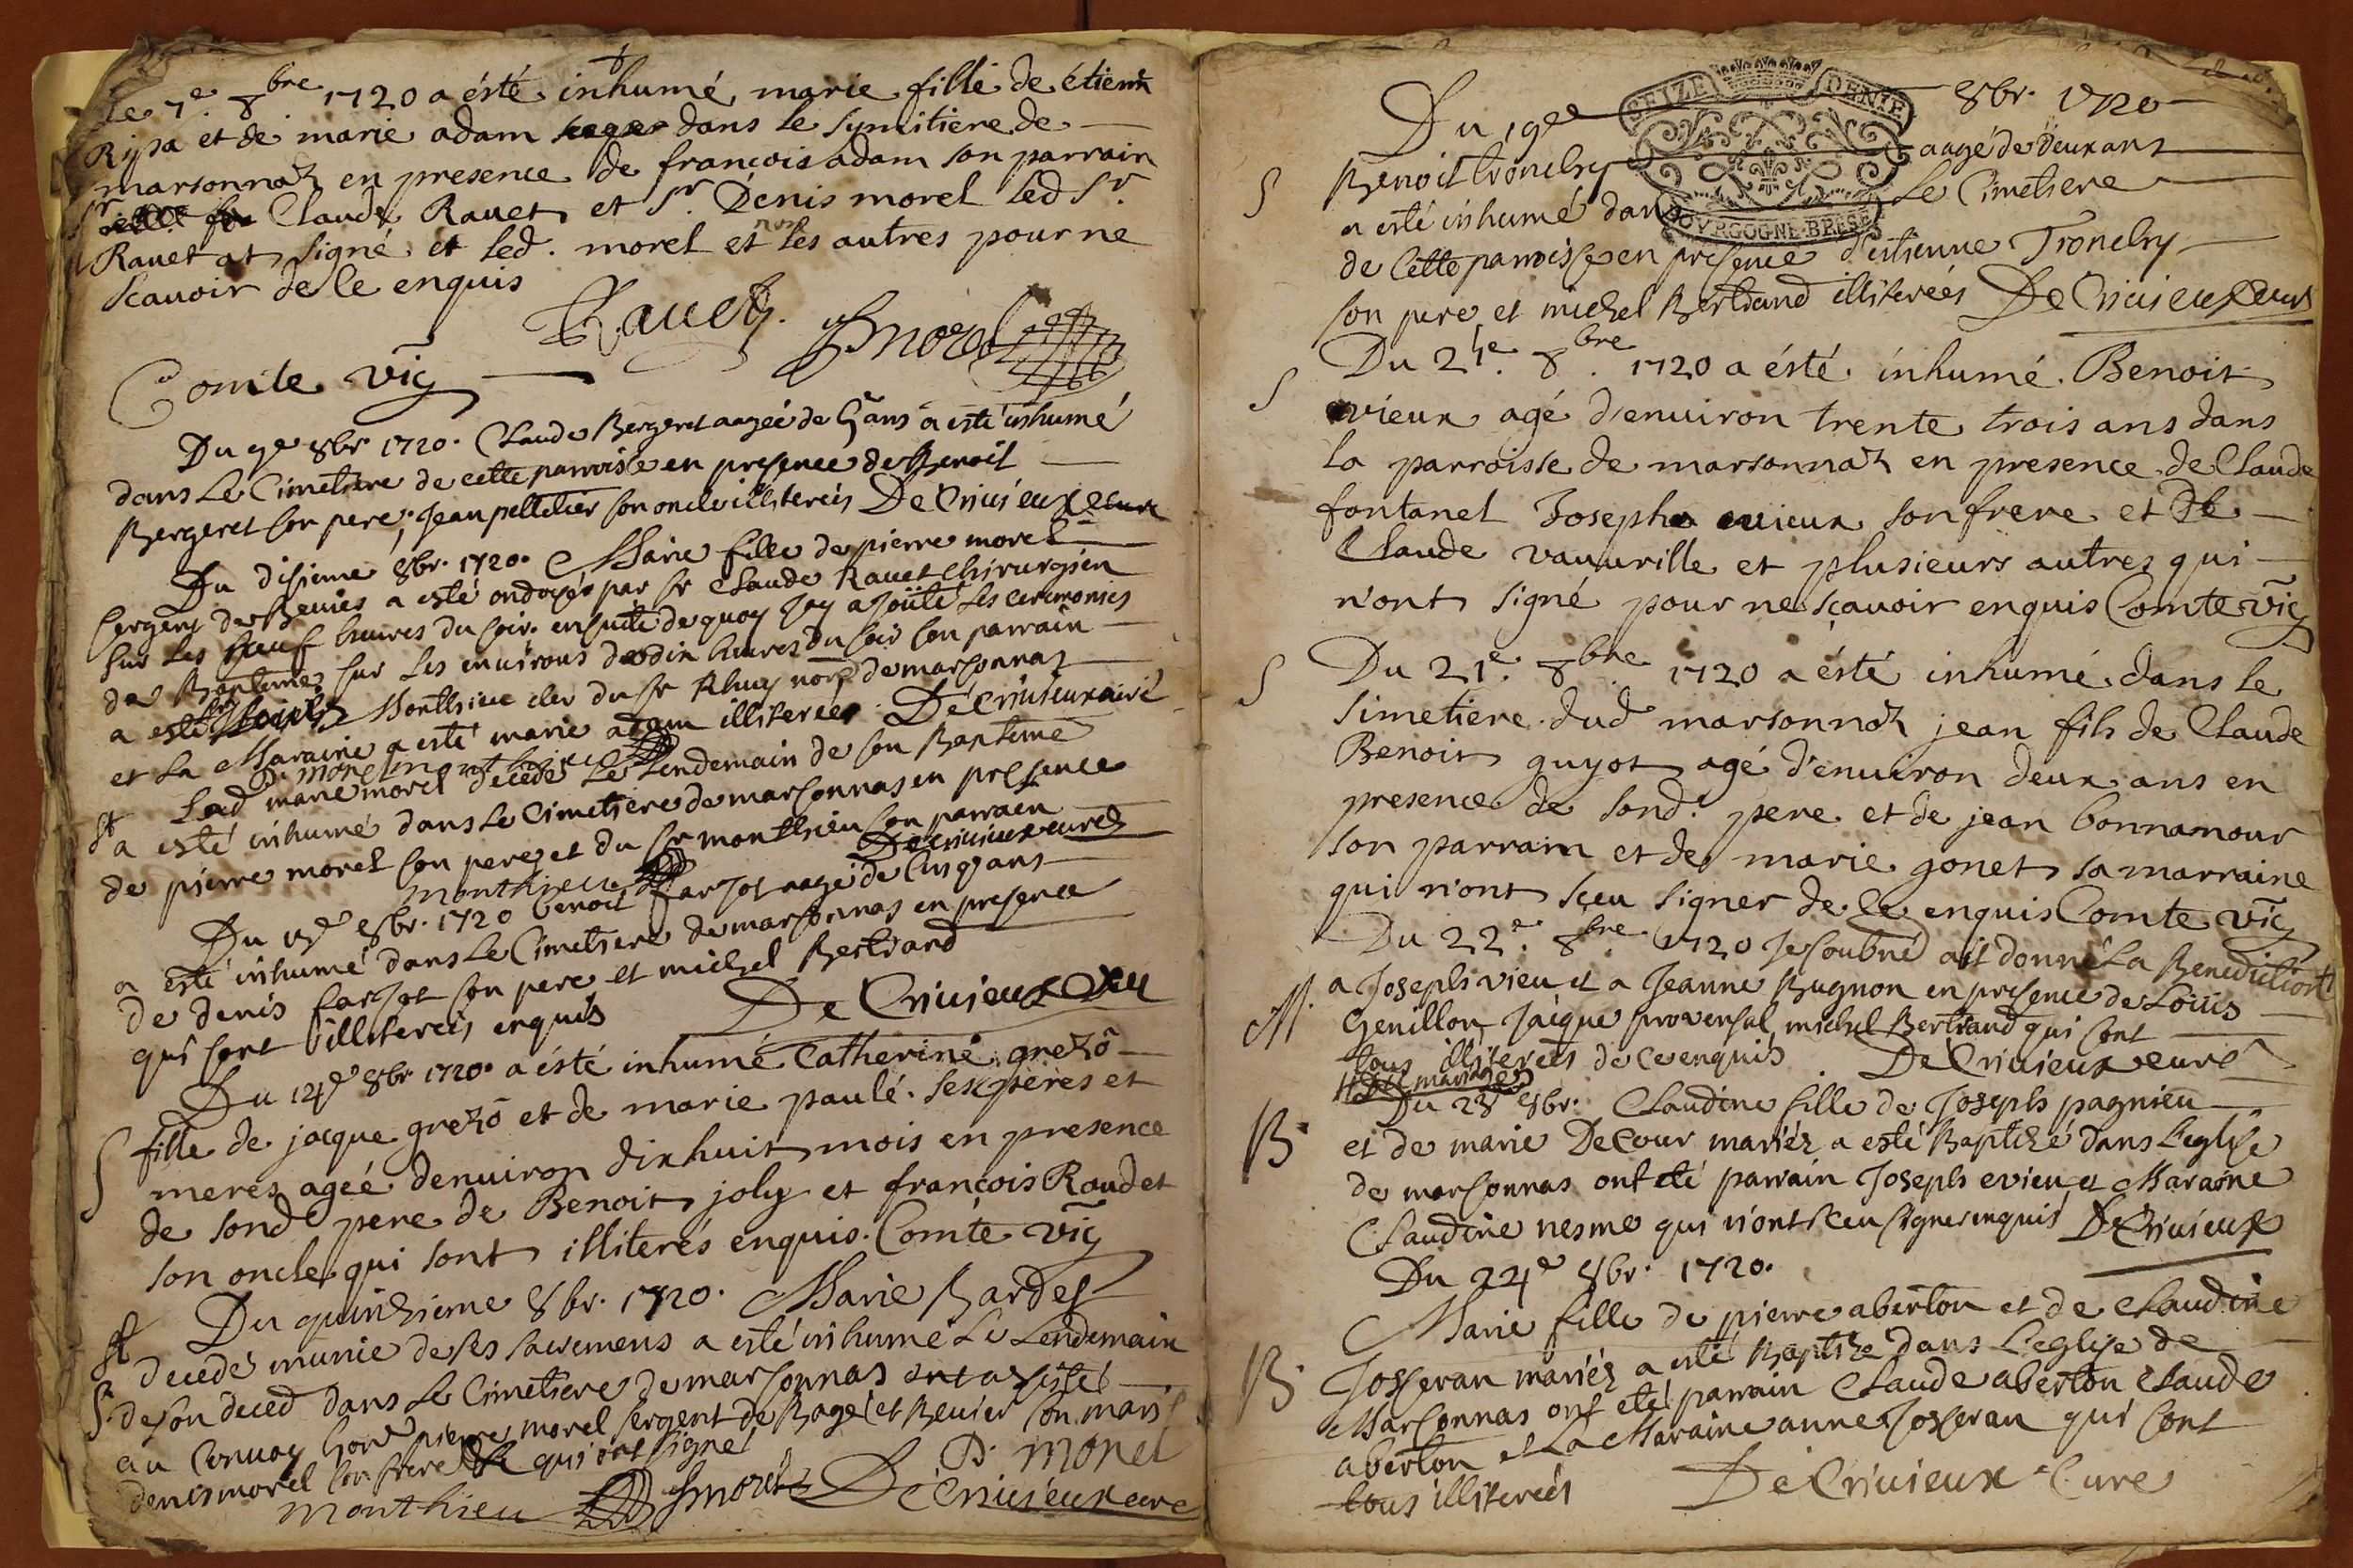 Le 7e. 8bre 1720 a ésté inhumé marie fille de étienn
Rypa et de marie adam dans le symitiere de
marsonnaz en presence de francois adam son parrain
Sr Claude Rauet et Sr. Denis morel led Sr.
Rauet at signé et led. morel et non les autres pour ne
scauoir de le enquis
Rauet. morel
Comte vic
Du 9e 8br 1720. Claude Bergeret aagée de 5 ans a esté inhumé
dans Le Cimetiere de cette parroisse en presence de Benoit
Bergeret son pere, Jean pelletier son oncle illiterées De Criuieux Curé
Du disieme 8br. 1720. Marie fille de pierre morel
sergent de Beuiés a esté ondoyée par sr Claude Rauet Chirurgien
sur Les neuf heures du soir. ensuite de quoy J'ay ajoûté Les ceremonies
de Baptême sur Les enuirons de dix heures du soir son parrain
a esté Monthieu cler du sr Rhuy nore de marsonnas
et La Maraine a esté marie adam illiterées De Criuieux curé
D. morel monthieu
Lad marie morel décedé Le Lendemain de son Baptême
St a esté inhumé dans Le Cimetiere de marsonnas en presence
de pierre morel son pere et du sr monthieu son parrain
De Criuieux curé
monthieu
Du 8br. 1720 benoit farjot aagé de Cinq ans
a esté inhumé dans Le Cimetiere de marsonnas en presence
de denis farjot son pere et michel Bertrand
qui sont illiterées enquis De Criuieux
Du 14e 8br 1720. a ésté inhumé Catherine grezô
S fille de jacque grezô et de marie paulé. ses peres et
meres agéé denuiron dixhuit mois en presence
de sond pere de Benoit joly et francois Roudet
son oncle qui sont illiterés enquis. Comte vic
St Du quinzieme 8br. 1720. Marie Bardet
decedé munie de ses sacremens a esté inhumé Le Lendemain
S. de son deced dans Le Cimetiere de marsonnas ont assisté
au Conuoy hore pierre morel sergent de Bagé et Beuiér son mari
denis morel son frere qui ont signé
P. morel
monthieu morel De Criuieux cure
Du 19e 8br. 1720
SEIZE DENIE
BOVRGOGNE. BRESSE
S Benoit tronchy aagé de deux ans
a esté inhumé dans Le Cimetiere
de Cette parroisse en presence d'estienne Tronchy
son pere et michel Bertrand illiterées De Criuieux Curé
Du 21e. 8bre. 1720 a ésté inhumé. Benoit
S evieux agé d'enuiron trente trois ans dans
la parroisse de marsonnaz en presence de Claude
fontanel Joseph evieux son frere et de
Claude vauurille et plusieurs autres qui
n'ont signé pour ne sçauoir enquis Comte vic
Du 21e. 8bre 1720 a ésté inhumé dans le
S simetiere dud marsonnaz jean fils de Claude
Benoit guyot agé d'enuiron deux ans en
presence de sond. pere et de jean bonnamour
son parrain et de marie gonet sa marraine
qui n'ont sçeu signer de le enquis Comte vic
Du 22e. 8bre 1720 Je soubné ait donné La Benediction
M. a Joseph vieu et a Jeanne Bugnon en presence de Loüis
Genillon, Jacque provensal, michel Bertrand qui sont
tous illiterées de ce enquis De Criuieux curé
mariage
Du 23 8br. Claudine fille de Joseph pagnieu
B. et de marie Decour mariéz a esté Baptizé dans L'eglise
de marsonnas ont eté parrain Joseph evieu et Maraine
Claudine nesme qui n'ont sceu signer enquis De Criuieux
Du 24e 8br. 1720.
Marie fille de pierre aberton et de Claudine
B. Josseran mariéz a esté Baptize dans L'eglise de
Marsonnas ont eté parrain Claude aberton Claude
aberton et La Maraine anne Josseran qui sont
tous illiterées De Criuieux Cure